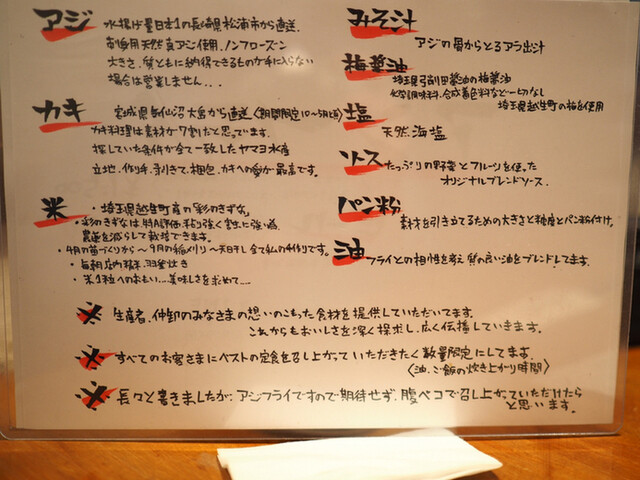 アジ
水揚げ量日本1の長崎県松浦市から直送。
刺身用天然真アジ使用。ノンフローズン
大きさ、質ともに納得できるものが手に入らない
場合は営業しません...
カキ
宮城県気仙沼大島から直送〈期間限定10〜5月頃〉
カキ料理は素材が7割だと思っています。
探していた条件が全て一致したヤマヨ水産
立地、作り手、剥きて、梱包、カキへの愛が最高です。
米
・埼玉県越生町産の「彩のきずな」
・彩のきずなは特A評価、粘り強く害虫に強い為、
農薬を減らして栽培できます。
・4月の苗づくりから〜9月の稲刈り〜天日干し全て私の手作りです。
・毎朝店内精米、羽釜炊き
・米1粒へのおもい...美味しさを求めて...
みそ汁
アジの骨からとるアラ出汁
梅醤油
埼玉県弓削田醤油の梅醤油
化学調味料、合成着色料など一切なし
埼玉県越生町の梅を使用
塩
天然海塩
ソース
たっぷりの野菜とフルーツを使った
オリジナルブレンドソース。
パン粉
素材を引き立てるための大きさと糖度とパン粉付け。
油
フライとの相性を考え質の良い油をブレンドしてます。
※ 生産者、仲卸のみなさまの想いのこもった食材を提供していただいてます。
これからもおいしさを深く探求し、広く伝播していきます。
※ すべてのお客さまにベストの定食を召し上がっていただきたく数量限定にしてます。
〈油、ご飯の炊き上がり時間〉
※ 長々と書きましたが、アジフライですので期待せず、腹ペコで召し上がっていただけたら
と思います。